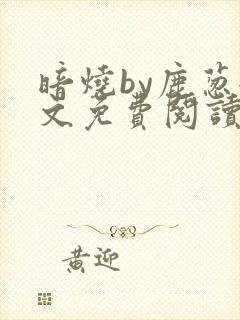 暗燒by鹿蔥
文免費閱讀
黃迎